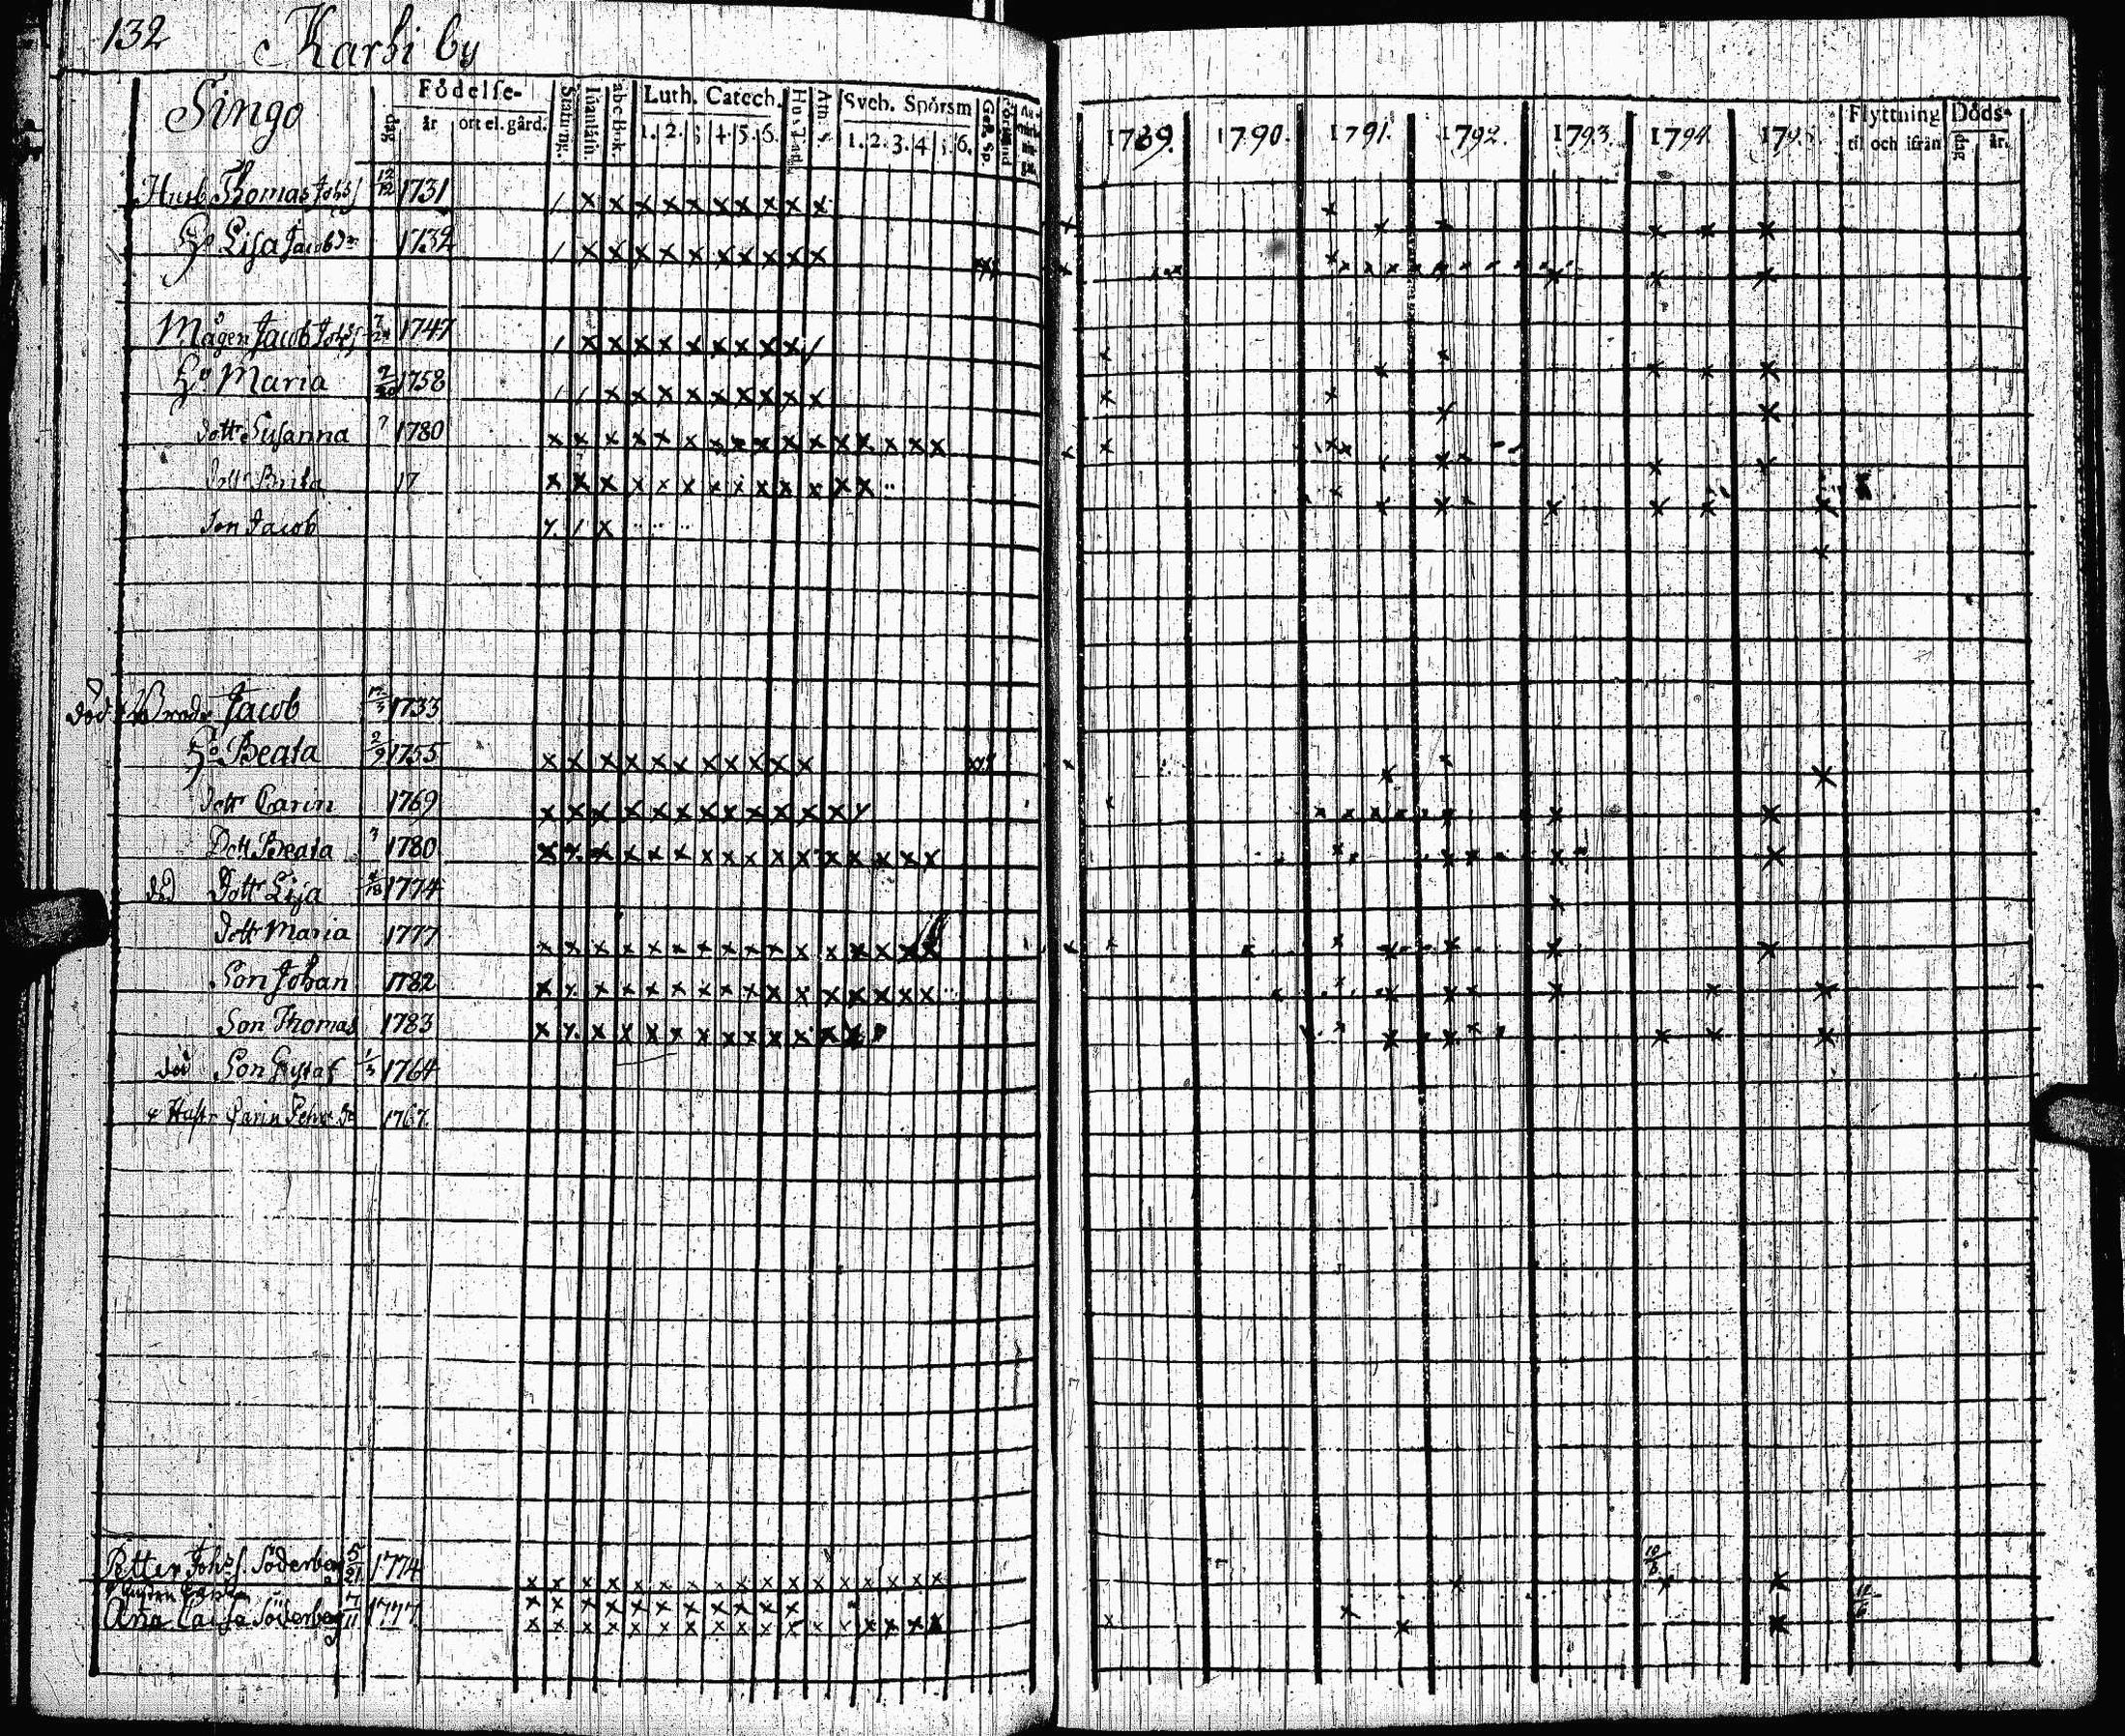 132 Karhi by
Singo
dag Födelse-
år ort el. gård.
Stafning. Innanläsn. abc Bok. Luth. Catech. 1. 2. 3 4. 5. 6. Hus Tafl. Ath. S. Sveb. Spörsm 1. 2. 3. 4 5. 6. Gez. Sp. Förstånd
1789. 1790. 1791. 1792. 1793. 1794. 1795 Flyttning til och ifrån Döds- dag år.
Husb Thomas Johs 12/12 1731
Ho Lisa Jacobdr 1732
Mågen Jacob Johs 1747
Ho Maria 1758
dottr Susanna 1780
dottr Brita 17
Son Jacob
död Brodr Jacob 1733
Ho Beata 2/9 1755
dottr Carin 1769
Dott Beata 3 1780
död Dottr Lisa 1774
Dottr Maria 1777
Son Johan 1782
Son Thomas 1783
död Son Gustaf 1/3 1764
Carin 1767.
Petter Johs. Söderberg 5/21 1774
Ana Caisa Söderberg 7/11 1777